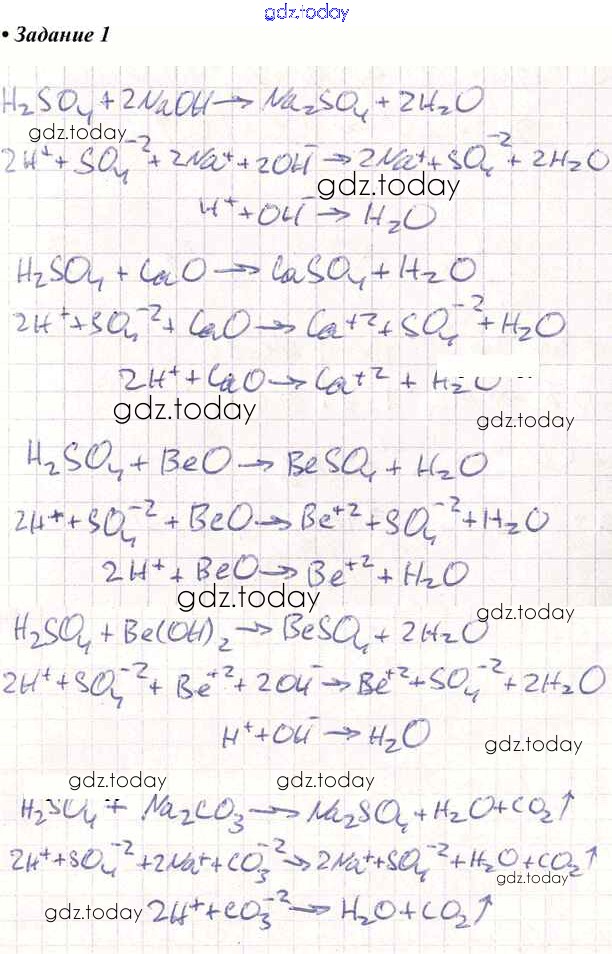 gdz.today
• Задание 1
H₂SO₄ + 2NaOH → Na₂SO₄ + 2H₂O
gdz.today
2H⁺ + SO₄⁻² + 2Na⁺ + 2OH⁻ → 2Na⁺ + SO₄⁻² + 2H₂O
gdz.today
H⁺ + OH⁻ → H₂O
H₂SO₄ + CaO → CaSO₄ + H₂O
2H⁺ + SO₄⁻² + CaO → Ca⁺² + SO₄⁻² + H₂O
2H⁺ + CaO → Ca⁺² + H₂O
gdz.today
gdz.today
H₂SO₄ + BeO → BeSO₄ + H₂O
2H⁺ + SO₄⁻² + BeO → Be⁺² + SO₄⁻² + H₂O
2H⁺ + BeO → Be⁺² + H₂O
gdz.today
gdz.today
H₂SO₄ + Be(OH)₂ → BeSO₄ + 2H₂O
2H⁺ + SO₄⁻² + Be⁺² + 2OH⁻ → Be⁺² + SO₄⁻² + 2H₂O
H⁺ + OH⁻ → H₂O
gdz.today
gdz.today gdz.today
H₂SO₄ + Na₂CO₃ → Na₂SO₄ + H₂O + CO₂↑
2H⁺ + SO₄⁻² + 2Na⁺ + CO₃⁻² → 2Na⁺ + SO₄⁻² + H₂O + CO₂↑
gdz.today
gdz.today 2H⁺ + CO₃⁻² → H₂O + CO₂↑